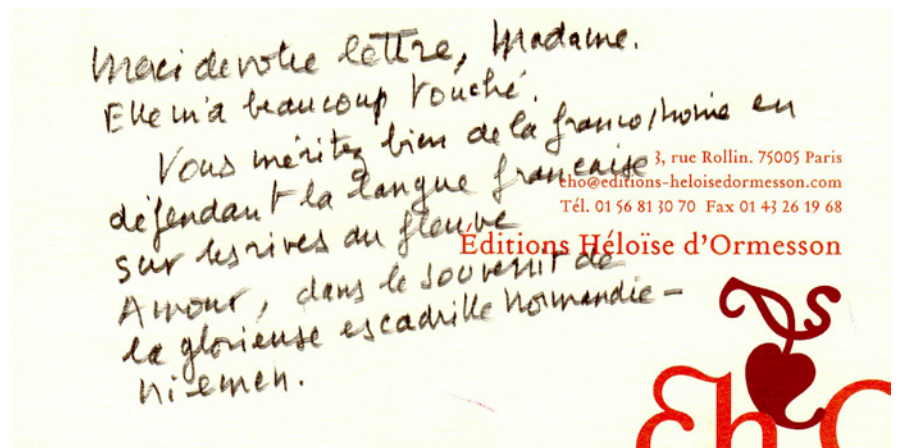 Merci de votre lettre, Madame.
Elle m'a beaucoup touché.
Vous méritez bien de la francophonie en
défendant la langue française
sur les rives du fleuve
Amour, dans le souvenir de
la glorieuse escadrille Normandie-
Niemen.
3, rue Rollin. 75005 Paris
eho@editions-heloisedormesson.com
Tél. 01 56 81 30 70 Fax 01 43 26 19 68
Éditions Héloïse d'Ormesson
EhO